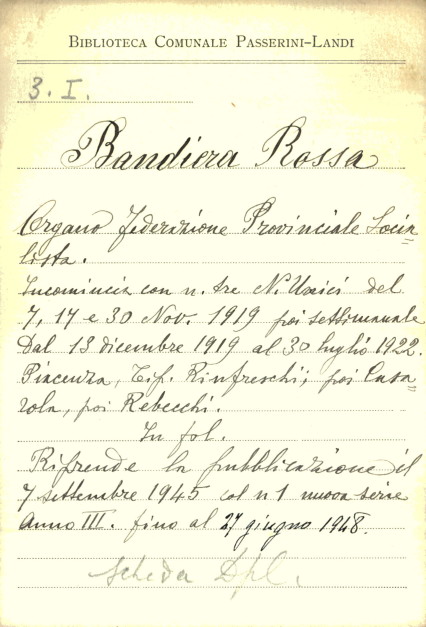 BIBLIOTECA COMUNALE PASSERINI-LANDI
3. I.
Bandiera Rossa
Organo Federazione Provinciale Socia=
lista.
Incomincia con n. tre N. Unici del
7, 17 e 30 Nov. 1919 poi settimanale
Dal 13 dicembre 1919 al 30 luglio 1922.
Piacenza, Tip. Rinfreschi; poi Casa=
rola, poi Rebecchi.
In fol.
Riprende la pubblicazione il
7 settembre 1945 col n 1 nuova serie
Anno III. fino al 27 giugno 1948.
scheda Dpl.